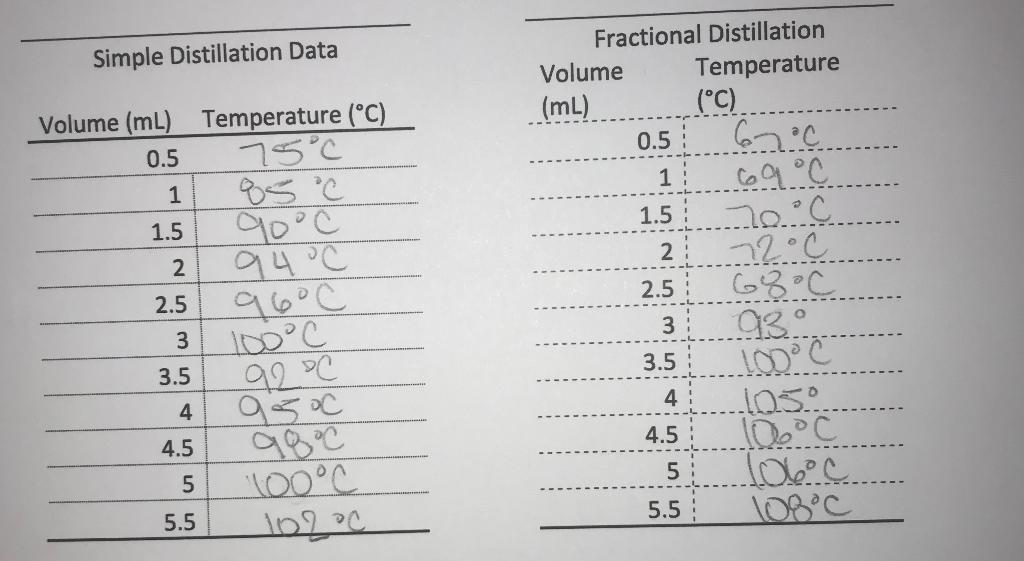 Simple Distillation Data
Volume (mL) Temperature (°C)
0.5 75°C
1 85°C
1.5 90°C
2 94°C
2.5 96°C
3 100°C
3.5 92°C
4 95°C
4.5 98°C
5 100°C
5.5 102°C
Fractional Distillation
Volume Temperature
(mL) (°C)
0.5 67°C
1 69°C
1.5 70°C
2 72°C
2.5 68°C
3 93°
3.5 100°C
4 105°
4.5 106°C
5 106°C
5.5 108°C